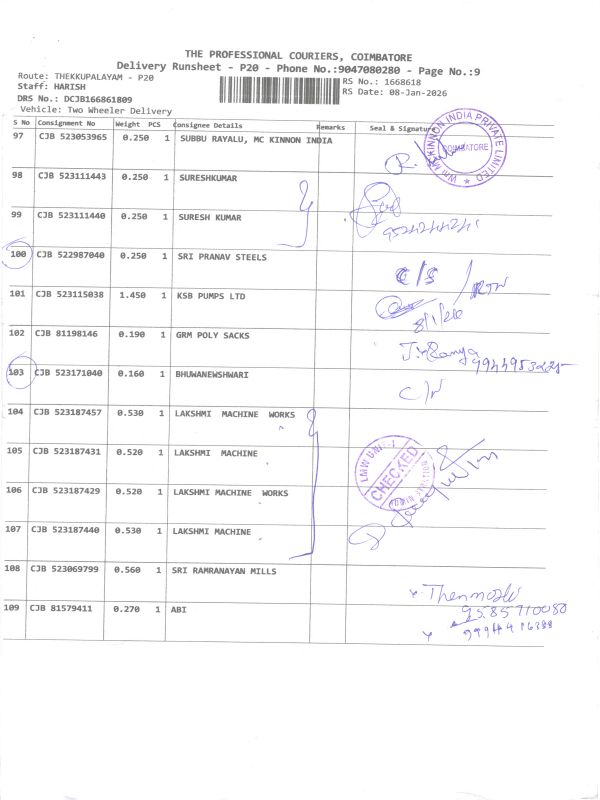 THE PROFESSIONAL COURIERS, COIMBATORE
Delivery Runsheet - P20 - Phone No.:9047080280 - Page No.:9
Route: THEKKUPALAYAM - P20
Staff: HARISH
DRS No.: DCJB166861809
Vehicle: Two Wheeler Delivery
RS No.: 1668618
RS Date: 08-Jan-2026
S No Consignment No Weight PCS Consignee Details Remarks Seal & Signature
97 CJB 523053965 0.250 1 SUBBU RAYALU, MC KINNON INDIA
98 CJB 523111443 0.250 1 SURESHKUMAR
99 CJB 523111440 0.250 1 SURESH KUMAR
100 CJB 522987040 0.250 1 SRI PRANAV STEELS C/S
RTN
101 CJB 523115038 1.450 1 KSB PUMPS LTD
8/1/26
102 CJB 81198146 0.190 1 GRM POLY SACKS
103 CJB 523171040 0.160 1 BHUWANEWSHWARI
104 CJB 523187457 0.530 1 LAKSHMI MACHINE WORKS
105 CJB 523187431 0.520 1 LAKSHMI MACHINE
106 CJB 523187429 0.520 1 LAKSHMI MACHINE WORKS
107 CJB 523187440 0.530 1 LAKSHMI MACHINE
108 CJB 523069799 0.560 1 SRI RAMRANAYAN MILLS
Thenmozhi
9585710080
109 CJB 81579411 0.270 1 ABI
KINNON INDIA PRIVATE LIMITED
COIMBATORE
CHECKED